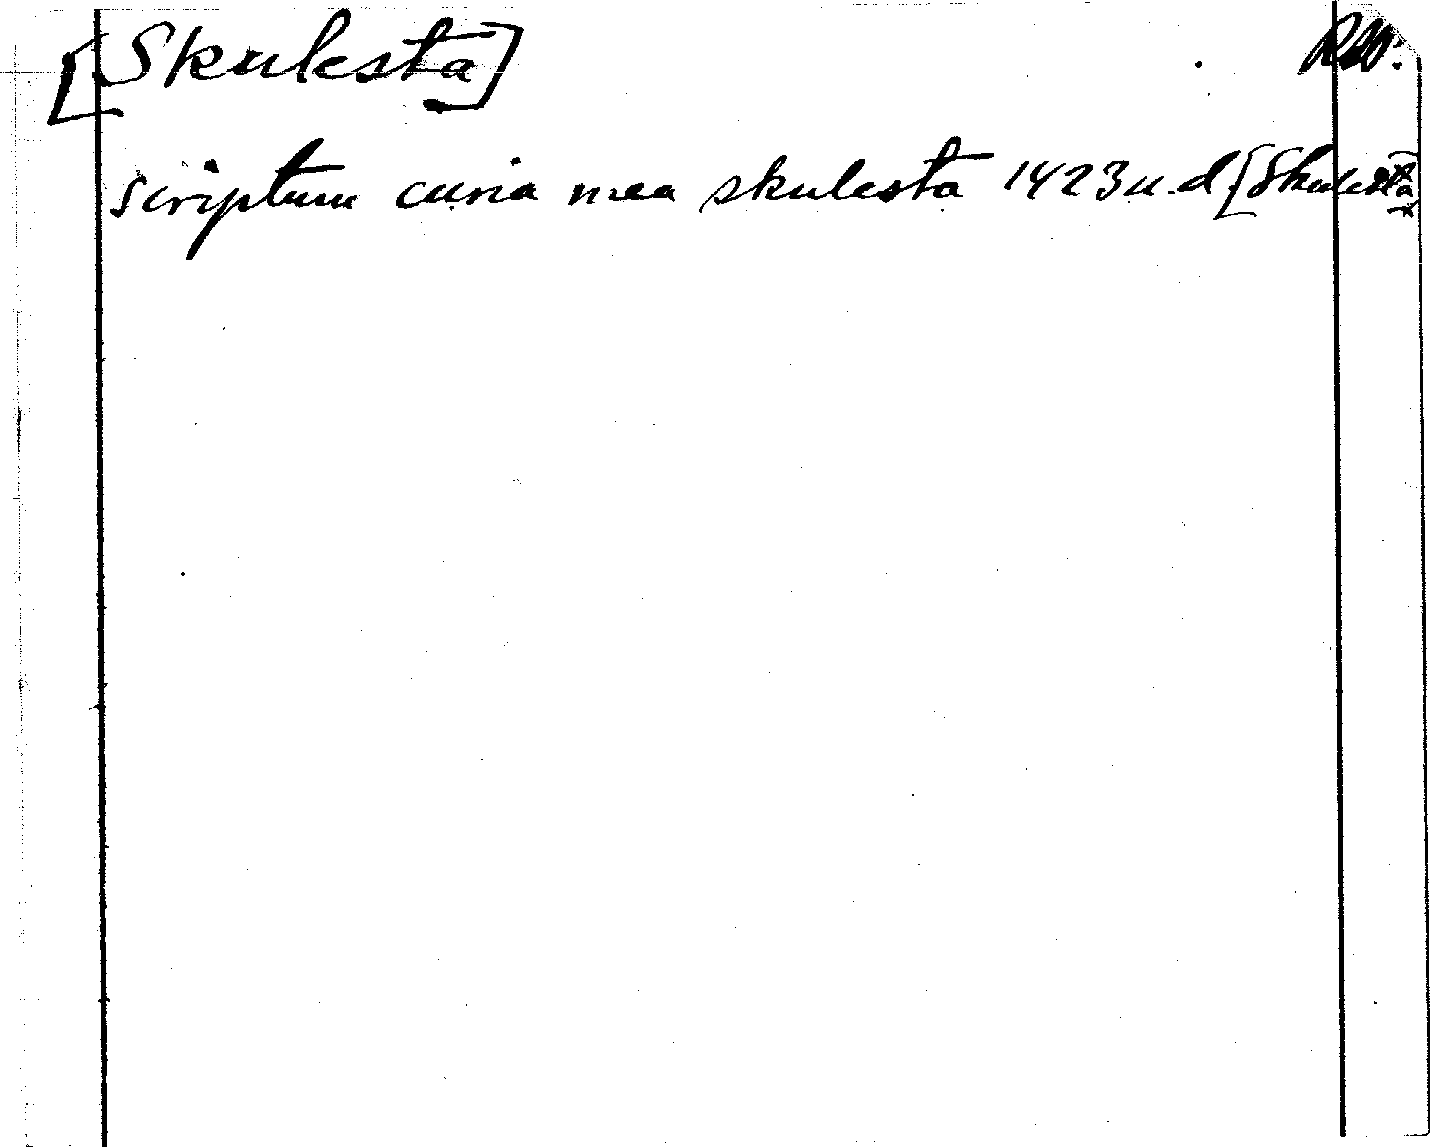 [Skulesta]
scriptum curia mea skulesta 1423 u. d [Skulesta